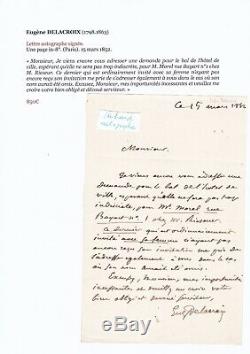 Eugène DELACROIX (1798-1863)
Lettre autographe signée.
Une page in-8°. (Paris). 15 mars 1852.
« Monsieur, Je viens encore vous adresser une demande pour le bal de l'hôtel de
ville, espérant qu'elle ne sera pas trop indiscrète, pour M. Morel rue Bayart n°1 chez
M. Riesener. Ce dernier qui est ordinairement invité avec sa femme n'ayant pas
encore reçu son invitation m'a prié de l'adresser également à vous dans le cas où son
nom aurait été omis. Excusez, Monsieur, mes importunités incessantes et veuillez me
croire votre bien obligé et dévoué serviteur. »
850€
Ce 15 mars 1852
Monsieur,
Je viens encore vous adresser une
demande pour le bal de l'hôtel de
ville, espérant qu'elle ne sera pas trop
indiscrète, pour Mr. Morel rue
Bayart n° 1 chez Mr. Riesener.
Ce dernier qui est ordinairement
invité avec sa femme n'ayant pas
encore reçu son invitation m'a prié de
l'adresser également à vous dans le cas
où son nom aurait été omis.
Excusez, Monsieur, mes importunités
incessantes et veuillez me croire votre
bien obligé et dévoué serviteur.
EugDelacroix